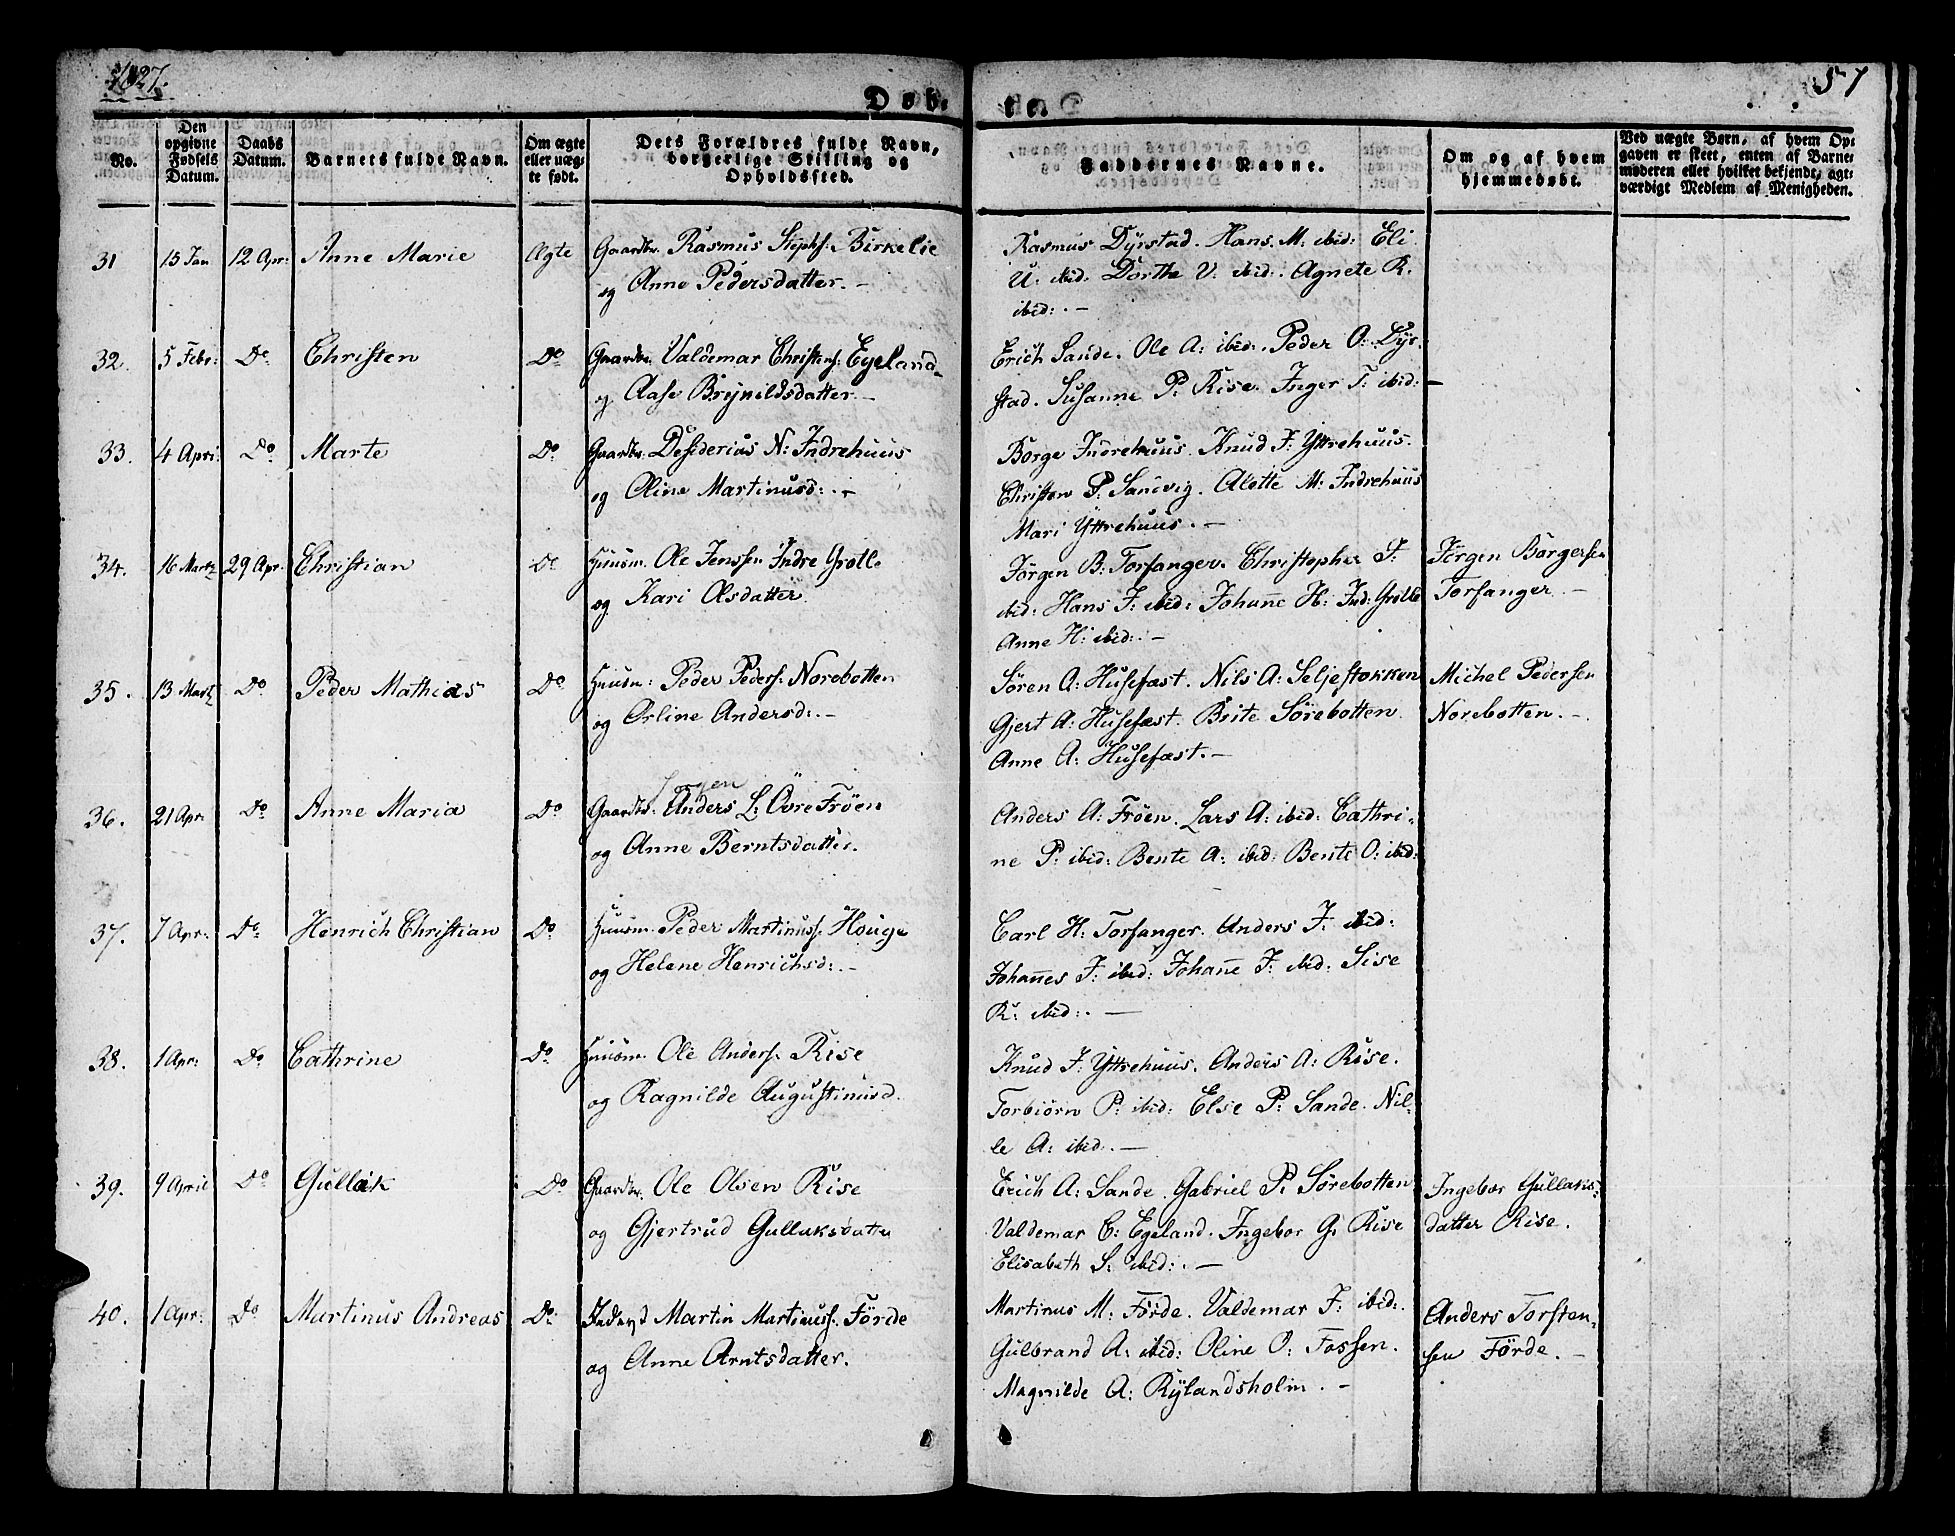 1827.
57
Døb- te.
No.
Den opgivne Fødsels Datum.
Daabs Datum.
Barnets fulde Navn.
Om ægte eller uægte født.
Dets Forældres fulde Navn, borgerlige Stilling og Opholdsted.
Faddernes Navne.
Om og af hvem hjemmedøbt.
Ved uægte Børn, af hvem Op-
gaven er skeet, enten af Barne-
moderen eller hvilket bekjendt, agt-
værdigt Medlem af Menigheden.
31 15 Jan 12 Apr: Anne Marie Ægte Gaardbr. Rasmus Stephs: Birkelie
og Anne Pedersdatter.—
Rasmus Dyrstad. Hans M: ibid: Eli
U: ibid. Dorthe V: ibid:. Agnete R.
ibid:.—
32. 5 Febr: Do Christen Do Gaardbr. Valdemar Christens: Egeland
og Aase Brynildsdatter.—
Erich Sande. Ole A: ibid:. Peder O: Dyr-
stad. Susanne P: Rise. Inger T: ibid:—
33. 4 Apri: Do Marte Do Gaardbr. Desiderius N: Indrehuus
og Oline Martinusd:.—
Børge Indrehuus. Knud J: Yttrehuus.
Christen P: Sandvig. Alette M: Indrehuus
Mari Yttrehuus.—
34. 16 Martz 29 Apr. Christian Do Huusm. Ole Jenssen Indre Grotle
og Kari Olsdatter
Jörgen B: Torfanger. Christopher J:
ibid: Hans J: ibid: Johanne H: Ind: Grotle
Anne H: ibid:.—
Jörgen Børgersen
Torfanger.—
35. 13 Martz Do Peder Mathias Do Huusm: Peder Peders: Norebotten
og Orline Andersd:.—
Søren A: Husefæst. Nils A: Seljestokken
Gjert A: Husefæst. Brite Sørebotten
Anne A: Husefæst.—
Michel Pedersen
Norebotten.—
Jørgen
36. 21 Apr: Do Anne Maria Do Gaardbr: Anders L: Övre Fröen
og Anne Berntsdatter.
Anders A: Fröen. Lars A: ibid: Cathri-
ne P: ibid: Bente A: ibid: Bente O: ibid:
37. 7 Apr: Do Henrich Christian Do Huusm. Peder Martinuss: Houge
og Helene Henrichsd:.—
Carl H: Torfanger. Anders J: ibid:
Johannes J: ibid: Johanne J: ibid: Sise
R: ibid:.—
38. 1 Apr: Do Cathrine Do Huusm. Ole Anders: Rise
og Ragnilde Augustinusd.
Knud J: Yttrehuus. Anders A: Rise.
Torbiörn P: ibid: Else P: Sande. Nil-
le A: ibid.—
39. 9 April Do Gullak Do Gaardbr. Ole Olsen Rise
og Gjertrud Gullaksdatter
Erich A: Sande. Gabriel P: Sørebotten
Valdemar C: Egeland. Ingebor G: Rise
Elisabeth S: ibid:.—
Ingebor Gullaks-
datter Rise.
40. 1 Apr: Do Martinus Andreas Do Martin Martinuss: Förde
og Anne Arntsdatter.
Martinus M: Förde. Valdemar J: ibid:
Gulbrand A: ibid: Oline O: Fossen.
Magnilde A: Rylandsholm.—
Anders Torsten-
sen Förde.—